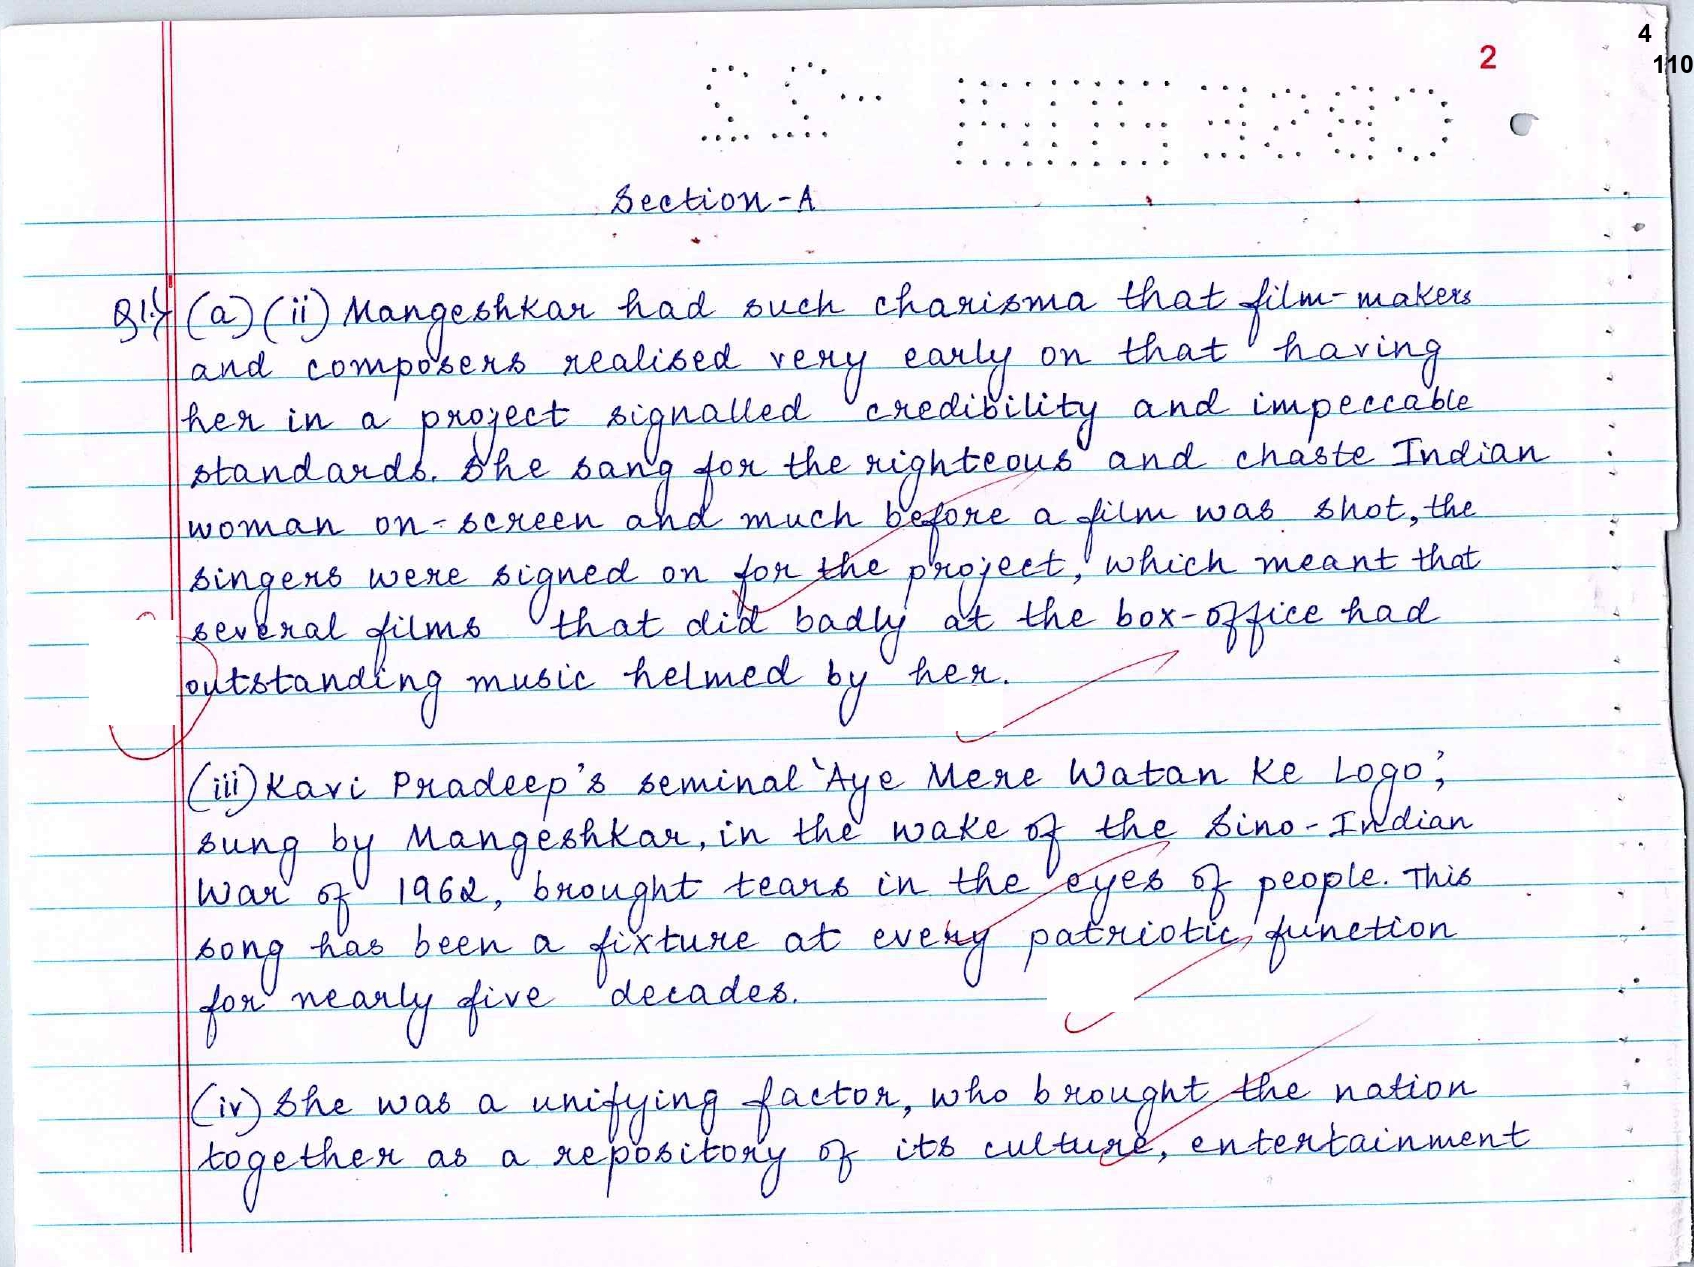 4
2
110
Section-A
Q1.) (a) (ii) Mangeshkar had such charisma that film-makers
and composers realised very early on that having
her in a project signalled credibility and impeccable
standards. She sang for the righteous and chaste Indian
woman on-screen and much before a film was shot, the
singers were signed on for the project, which meant that
several films that did badly at the box-office had
outstanding music helmed by her.
(iii) Kavi Pradeep's seminal 'Aye Mere Watan Ke Logo',
sung by Mangeshkar, in the wake of the Sino-Indian
War of 1962, brought tears in the eyes of people. This
song has been a fixture at every patriotic function
for nearly five decades.
(iv) She was a unifying factor, who brought the nation
together as a repository of its culture, entertainment